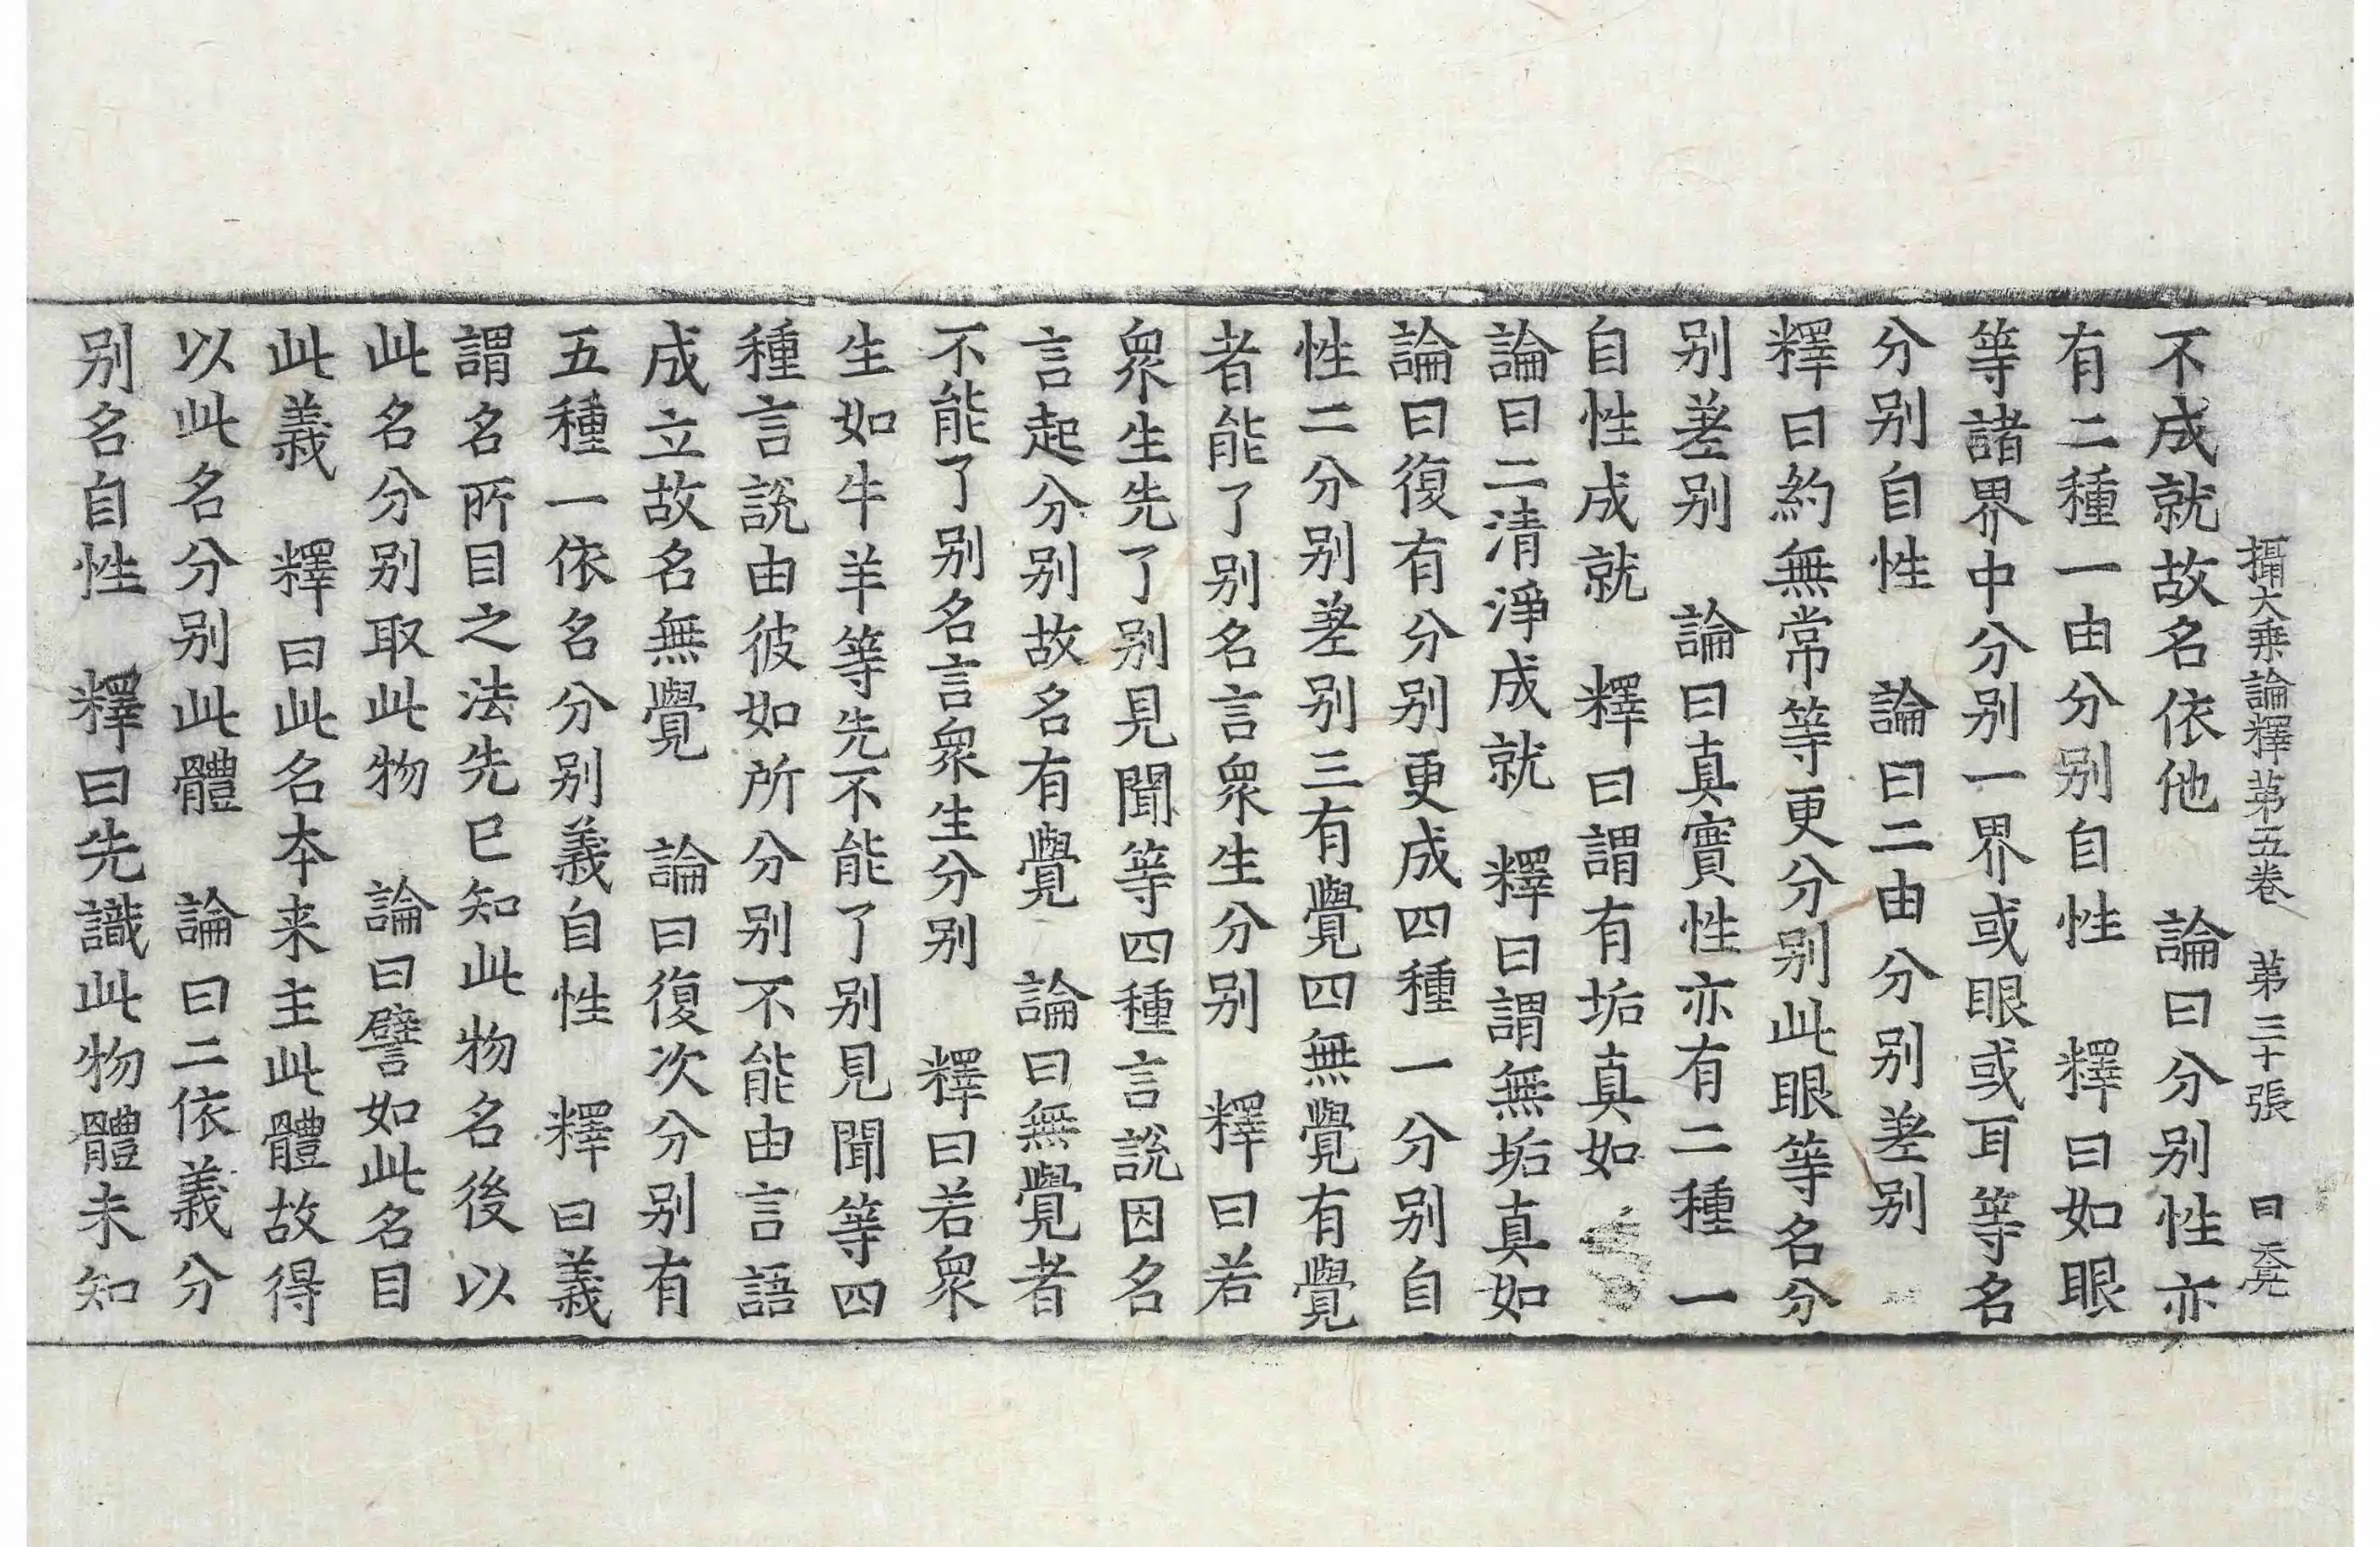 攝大乗論釋第五卷 第三十張 曰
不成就故名依他 論曰分别性亦
有二種一由分别自性 釋曰如眼
等諸界中分别一界或眼或耳等名
分别自性 論曰二由分别差别
釋曰約無常等更分别此眼等名分
别差别 論曰真實性亦有二種一
自性成就 釋曰謂有垢真如
論曰二清淨成就 釋曰謂無垢真如
論曰復有分别更成四種一分别自
性二分别差别三有覺四無覺有覺
者能了别名言衆生分别 釋曰若
衆生先了别見聞等四種言說因名
言起分别故名有覺 論曰無覺者
不能了别名言衆生分别 釋曰若衆
生如牛羊等先不能了别見聞等四
種言說由彼如所分别不能由言語
成立故名無覺 論曰復次分别有
五種一依名分别義自性 釋曰義
謂名所目之法先已知此物名後以
此名分别取此物 論曰譬如此名目
此義 釋曰此名本来主此體故得
以此名分别此體 論曰二依義分
别名自性 釋曰先識此物體未知